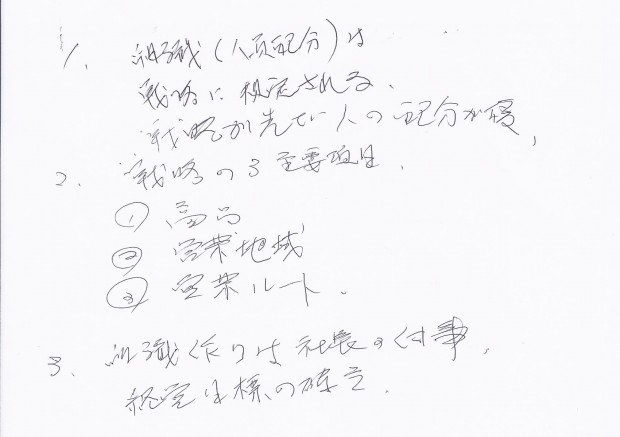 1. 組織(人員配分)は
戦略に規定される.
戦略が先で人の配分が後,
2. 戦略の3主要項目.
① 商品
② 営業地域
③ 営業ルート.
3. 組織作りは社長の仕事,
経営目標の確立.